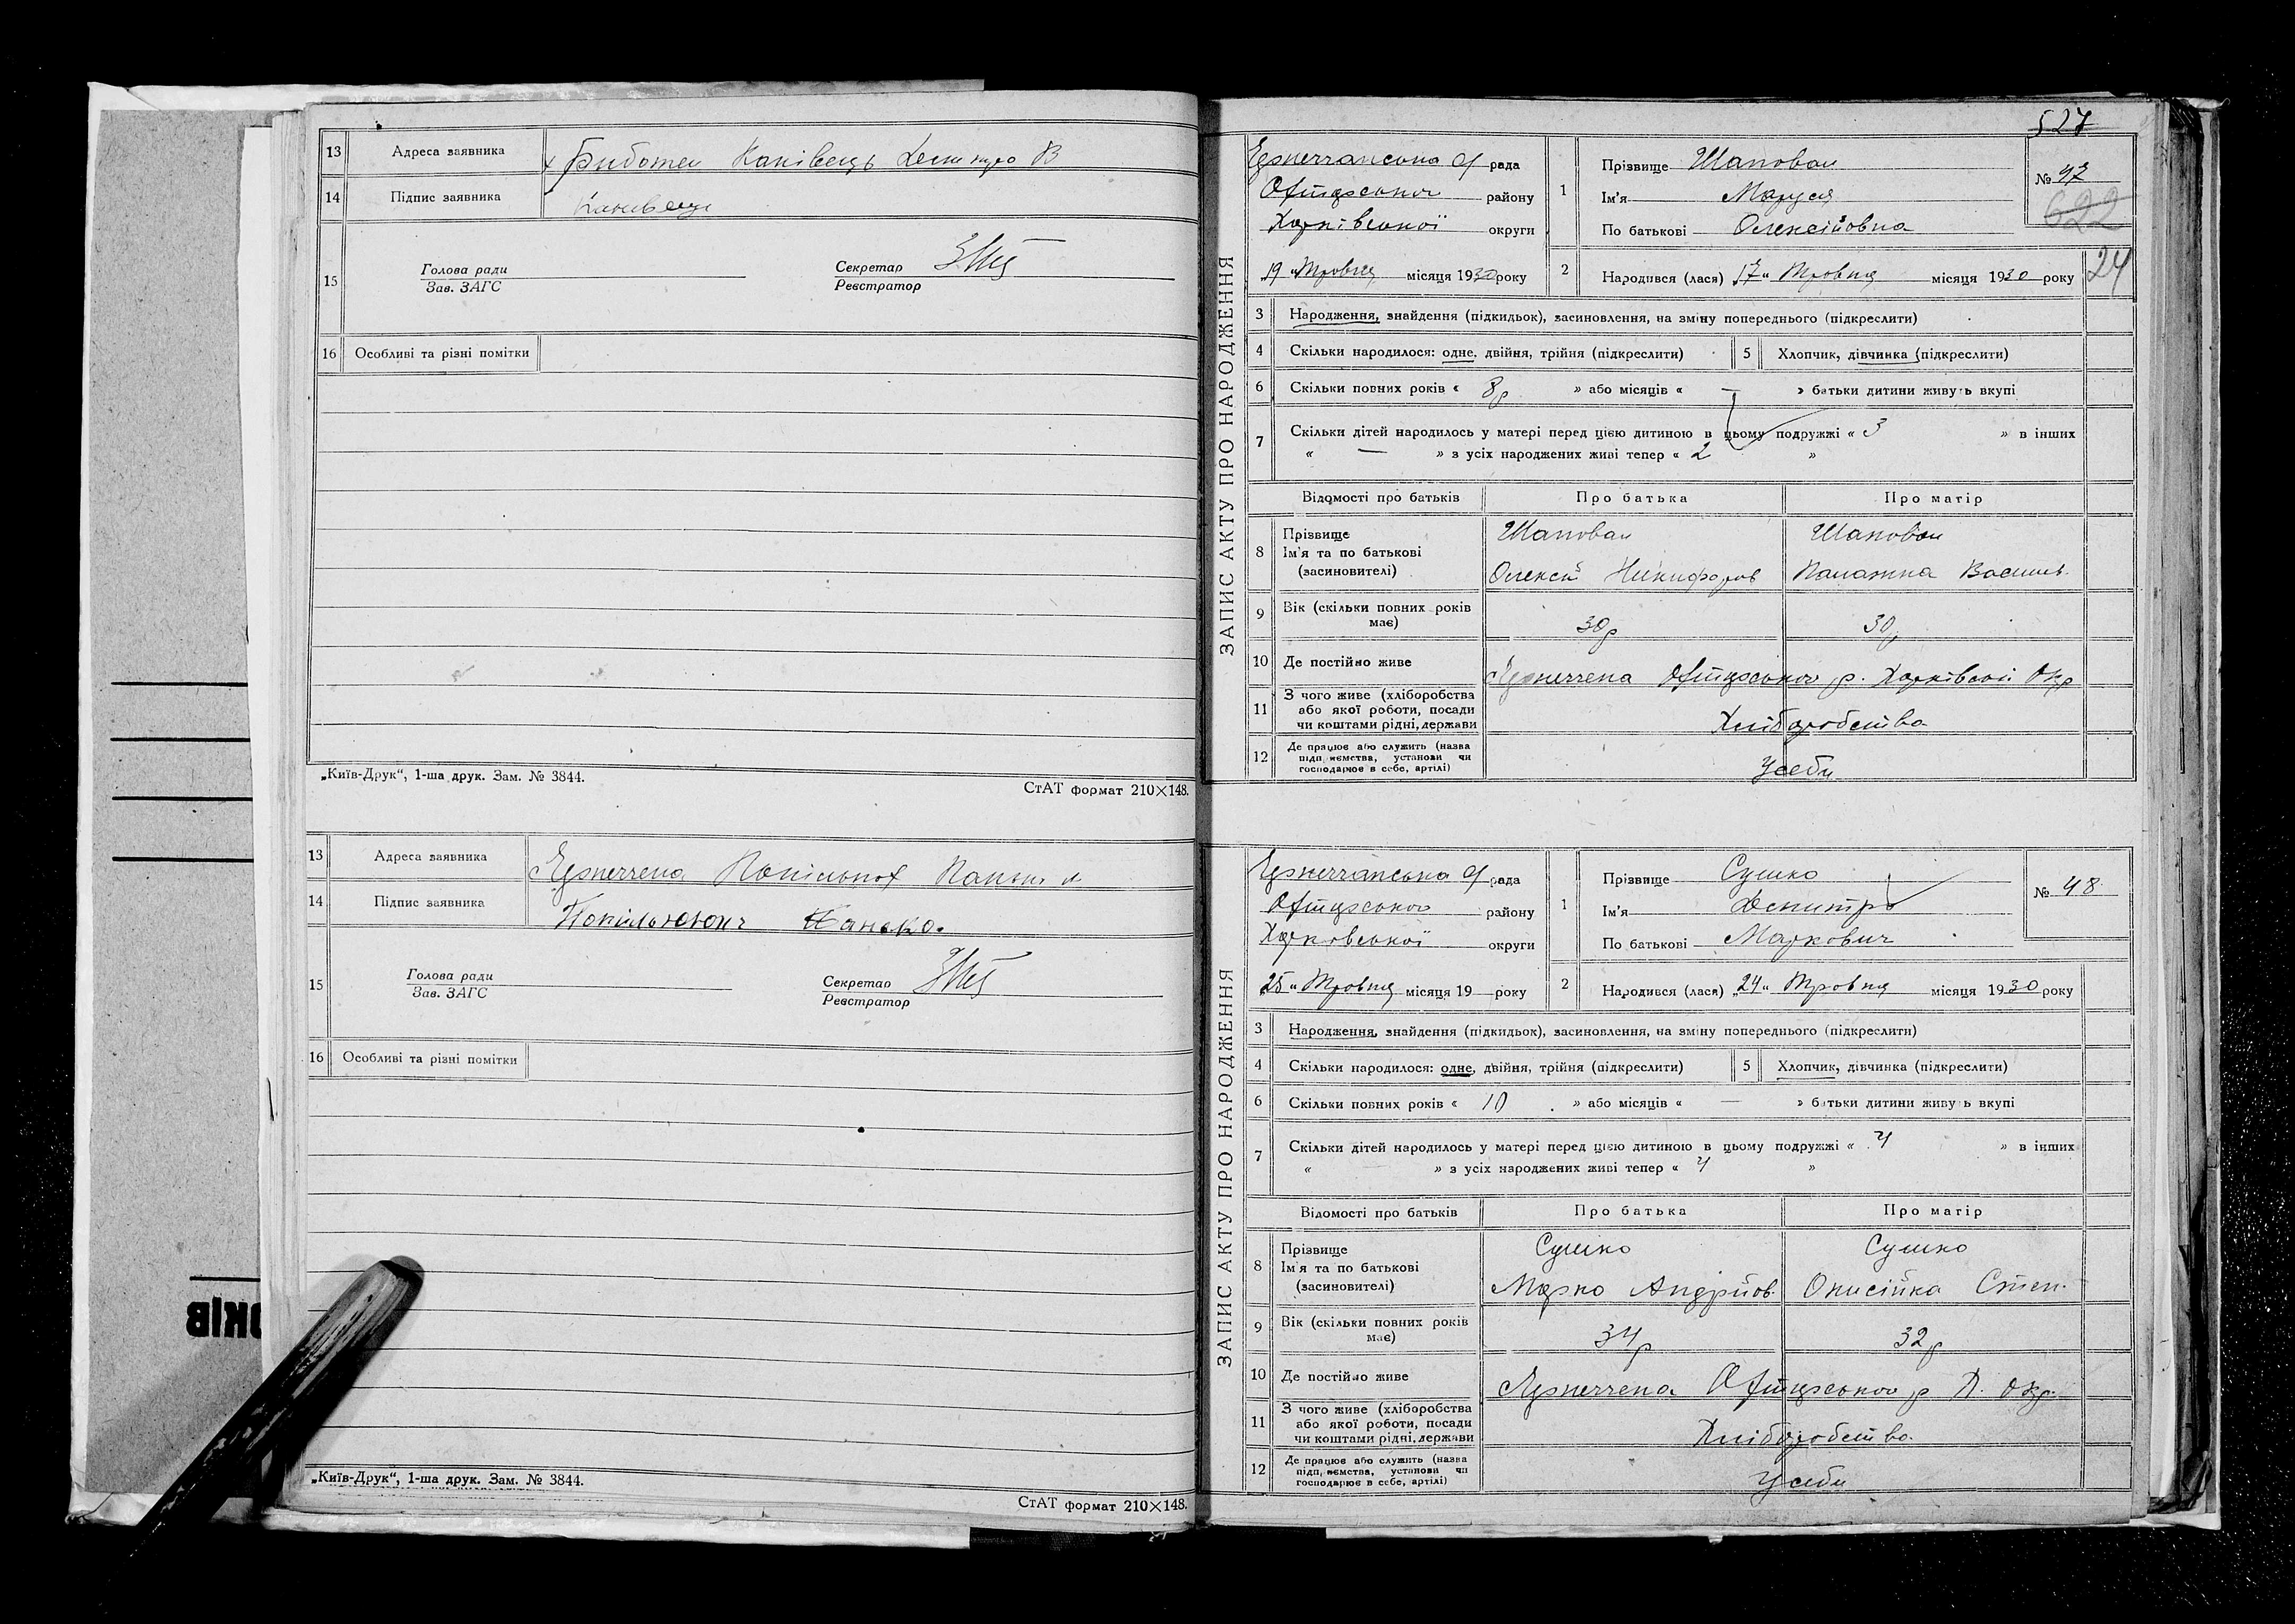 13 Адреса заявника Канівець
14 Підпис заявника
15 Голова ради
Зав. ЗАГС
Секретар
Реєстратор
16 Особливі та різні помітки
„Київ-Друк“, 1-ша друк. Зам. № 3844.
СтАТ формат 210×148.
13 Адреса заявника
14 Підпис заявника
15 Голова ради
Зав. ЗАГС
Секретар
Реєстратор
16 Особливі та різні помітки
„Київ-Друк“, 1-ша друк. Зам. № 3844.
СтАТ формат 210×148.
ОКІВ
527
ЗАПИС АКТУ ПРО НАРОДЖЕННЯ
рада
району
Харківської округи
19 „Травня місяця 1930 року
1 Прізвище Шаповал
Ім'я Маруся
По батькові Олексійовна
№ 47
622
24
2 Народився (лася) „17“ Травня місяця 1930 року
3 Народження, знайдення (підкидьок), засиновлення, на зміну попереднього (підкреслити)
4 Скільки народилося: одне, двійня, трійня (підкреслити) 5 Хлопчик, дівчинка (підкреслити)
6 Скільки повних років « 8р » або місяців « — » батьки дитини живуть вкупі
7 Скільки дітей народилось у матері перед цією дитиною в цьому подружжі « 3 » в інших
« — » з усіх народжених живі тепер « 2 »
Відомості про батьків Про батька Про матір
8 Прізвище Шаповал Шаповал
Ім'я та по батькові
(засиновителі) Олексій Никифоров
9 Вік (скільки повних років має) 30р 30р
10 Де постійно живе р. Харківської Окр
11 З чого живе (хліборобства
або якої роботи, посади
чи коштами рідні, держави Хліборобства
12 Де працює або служить (назва
підприємства, установи чи
господарює в себе, артілі) У себе
ЗАПИС АКТУ ПРО НАРОДЖЕННЯ
рада
району
округи
25 „Травня місяця 19 року
1 Прізвище Сушко
Ім'я Дмитро
По батькові Маркович
№ 48
2 Народився (лася) „24“ Травня місяця 1930 року
3 Народження, знайдення (підкидьок), засиновлення, на зміну попереднього (підкреслити)
4 Скільки народилося: одне, двійня, трійня (підкреслити) 5 Хлопчик, дівчинка (підкреслити)
6 Скільки повних років « 10 » або місяців « — » батьки дитини живуть вкупі
7 Скільки дітей народилось у матері перед цією дитиною в цьому подружжі « 4 » в інших
« — » з усіх народжених живі тепер « 4 »
Відомості про батьків Про батька Про матір
8 Прізвище Сушко Сушко
Ім'я та по батькові
(засиновителі) Марко Андрійов. Онисійка Степ.
9 Вік (скільки повних років має) 34р 32р
10 Де постійно живе р Х. Окр.
11 З чого живе (хліборобства
або якої роботи, посади
чи коштами рідні, держави Хліборобства
12 Де працює або служить (назва
підприємства, установи чи
господарює в себе, артілі) У себе